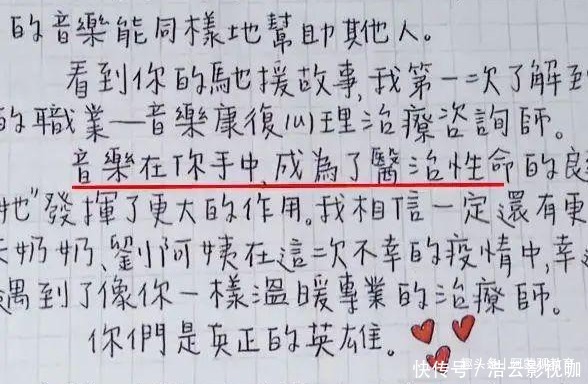 的音樂能同樣地幫助其他人。
看到你的馳援故事,我第一次了解到
的職業—音樂康復心理治療咨詢師。
音樂在你手中,成為了醫治性命的良
她"發揮了更大的作用。我相信一定還有更
奶奶、劉阿姨在這次不幸的疫情中,幸
遇到了像你一樣溫暖專業的治療師。
你們是真正的英雄。
快传号/浩云影视咖